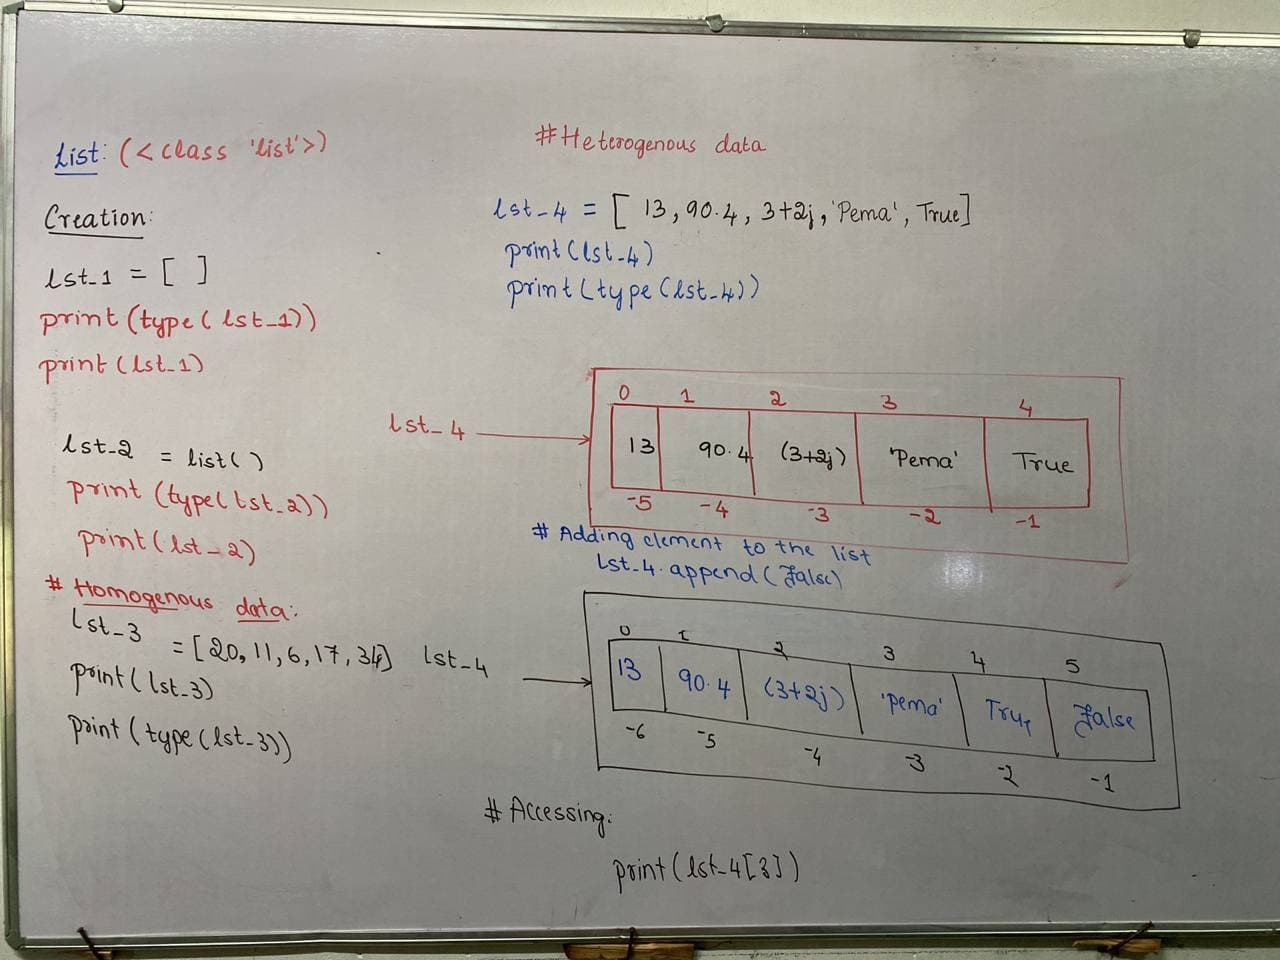 List: (<class 'list'>)
Creation:
lst_1 = [ ]
print(type(lst_1))
print(lst_1)
lst_2 = list()
print(type(lst_2))
print(lst_2)
# Homogenous data:
lst_3 = [20, 11, 6, 17, 34]
print(lst_3)
print(type(lst_3))
#Heterogenous data
lst_4 = [ 13, 90.4, 3+2j, 'Pema', True]
print(lst_4)
print(type(lst_4))
0 1 2 3 4
lst_4 13 90.4 (3+2j) 'Pema' True
-5 -4 -3 -2 -1
# Adding element to the list
lst_4.append(False)
0 1 2 3 4 5
lst_4 13 90.4 (3+2j) 'Pema' True False
-6 -5 -4 -3 -2 -1
# Accessing:
print(lst_4[3])